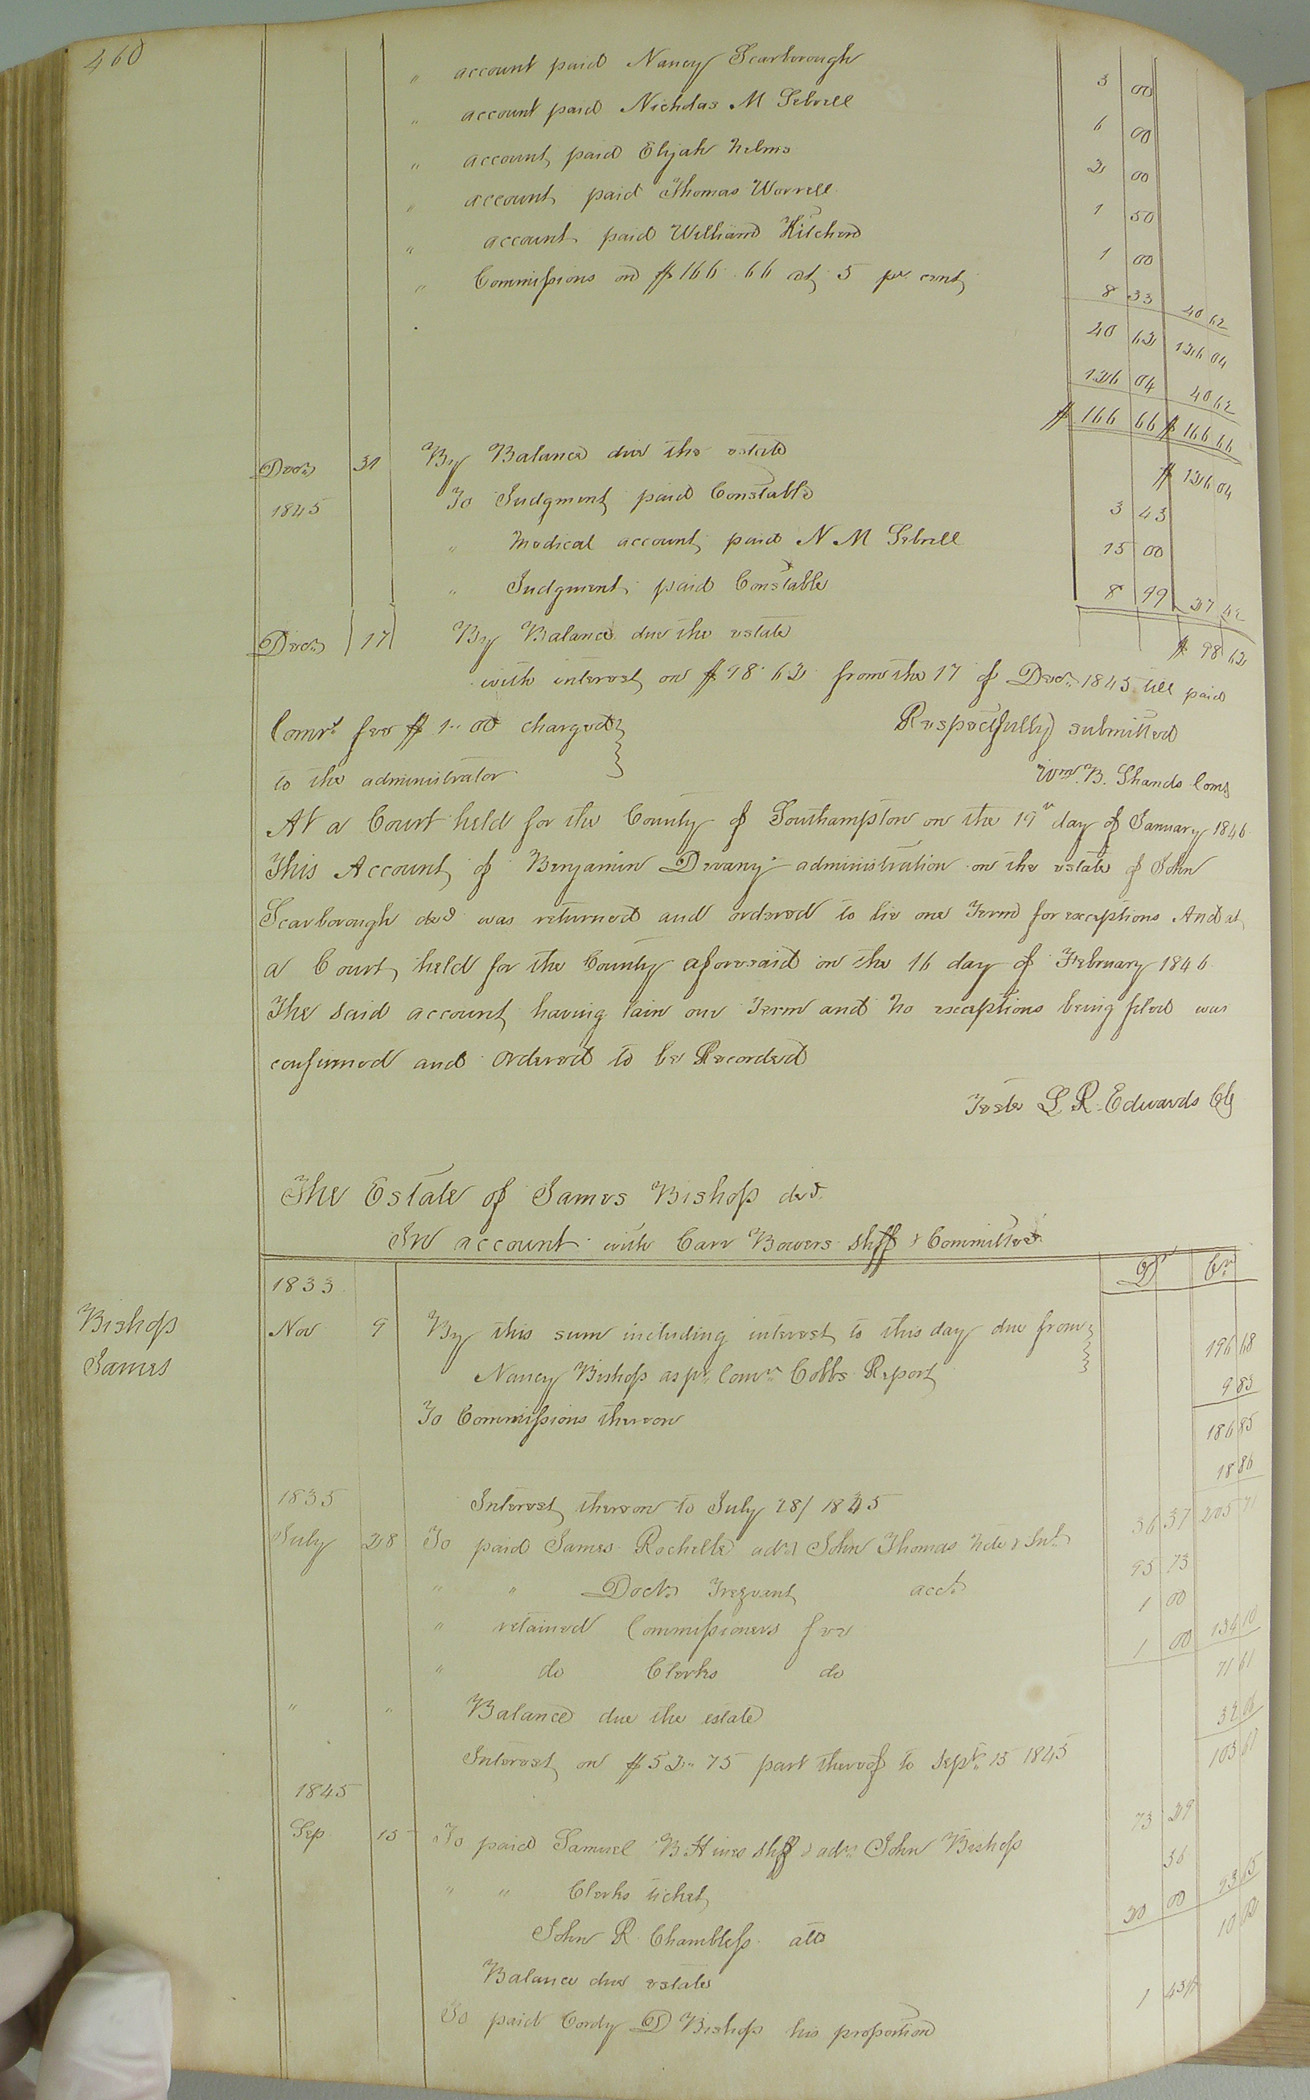 460
" account paid Nancy Scarborough 3 00
" account paid Nicholas M Sebrell 6 00
" account paid Elijah Helms 2 00
" account paid Thomas Worrell 1 50
" account paid William Kitchen 1 00
" Commissions on $166.66 at 5 pr cent 8 33 40 62
40 62 126 04
126 04 40 62
$ 166 66 $ 166 66
Decr 31 By Balance due the estate $ 126 04
1845 To Judgment paid Constable 3 43
" Medical account paid N M Sebrell 15 00
" Judgment paid Constable 8 99 27 42
Decr 17 By Balance due the estate $ 98 62
with interest on $98.62 from the 17 of Decr 1845 till paid
Comrs fee $1.00 charged Respectfully submitted
to the administrator Wm. B. Shands Comr
At a Court held for the County of Southampton on the 19th day of January 1846
This Account of Benjamin Devany administration on the estate of John
Scarborough decd was returned and ordered to lie one Term for exceptions And at
a Court held for the County aforesaid on the 16 day of February 1846
The said account having lain one Term and no exceptions being filed was
confirmed and ordered to be Recorded
Teste L R Edwards Clk
The Estate of James Bishop decd
In account with Carr Bowers Shff & Committee
Dr Cr
1833
Bishop
James
Nov 9 By this sum including interest to this day due from
Nancy Bishop as pr Comr Cobbs Report 196 68
To Commissions thereon 9 83
186 85
1835 Interest thereon to July 28/1835 18 86
July 28 To paid James Rochelle adm John Thomas note & Int 36 37 205 71
" " Docts Trezvant acct 95 73
" retained Commissioners fee 1 00
" do Clerks do 1 00 134 10
" " Balance due the estate 71 61
Interest on $52.75 part thereof to Sept 15 1845 32 06
103 67
1845
Sep 15 To paid Samuel B Hines Shff & adm John Bishop 73 29
" " Clerks ticket 36
John R Chambless atto 20 00 93 65
Balance due estate 10 02
To paid Cordy D Bishop his proportion 1 43